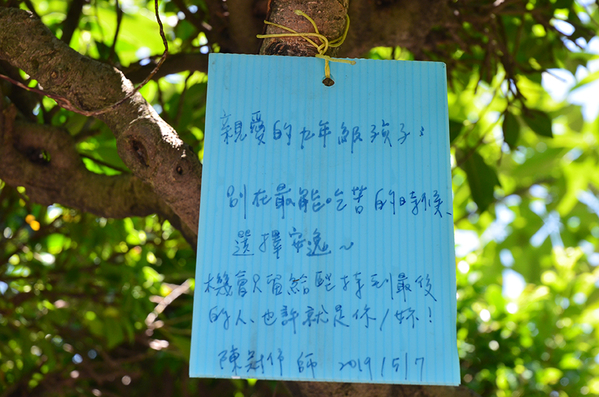 親愛的九年級孩子：
別在最能吃苦的時候、
選擇安逸～
機會只留給堅持到最後
的人、也許就是你/妳！
陳 師 2019/5/7